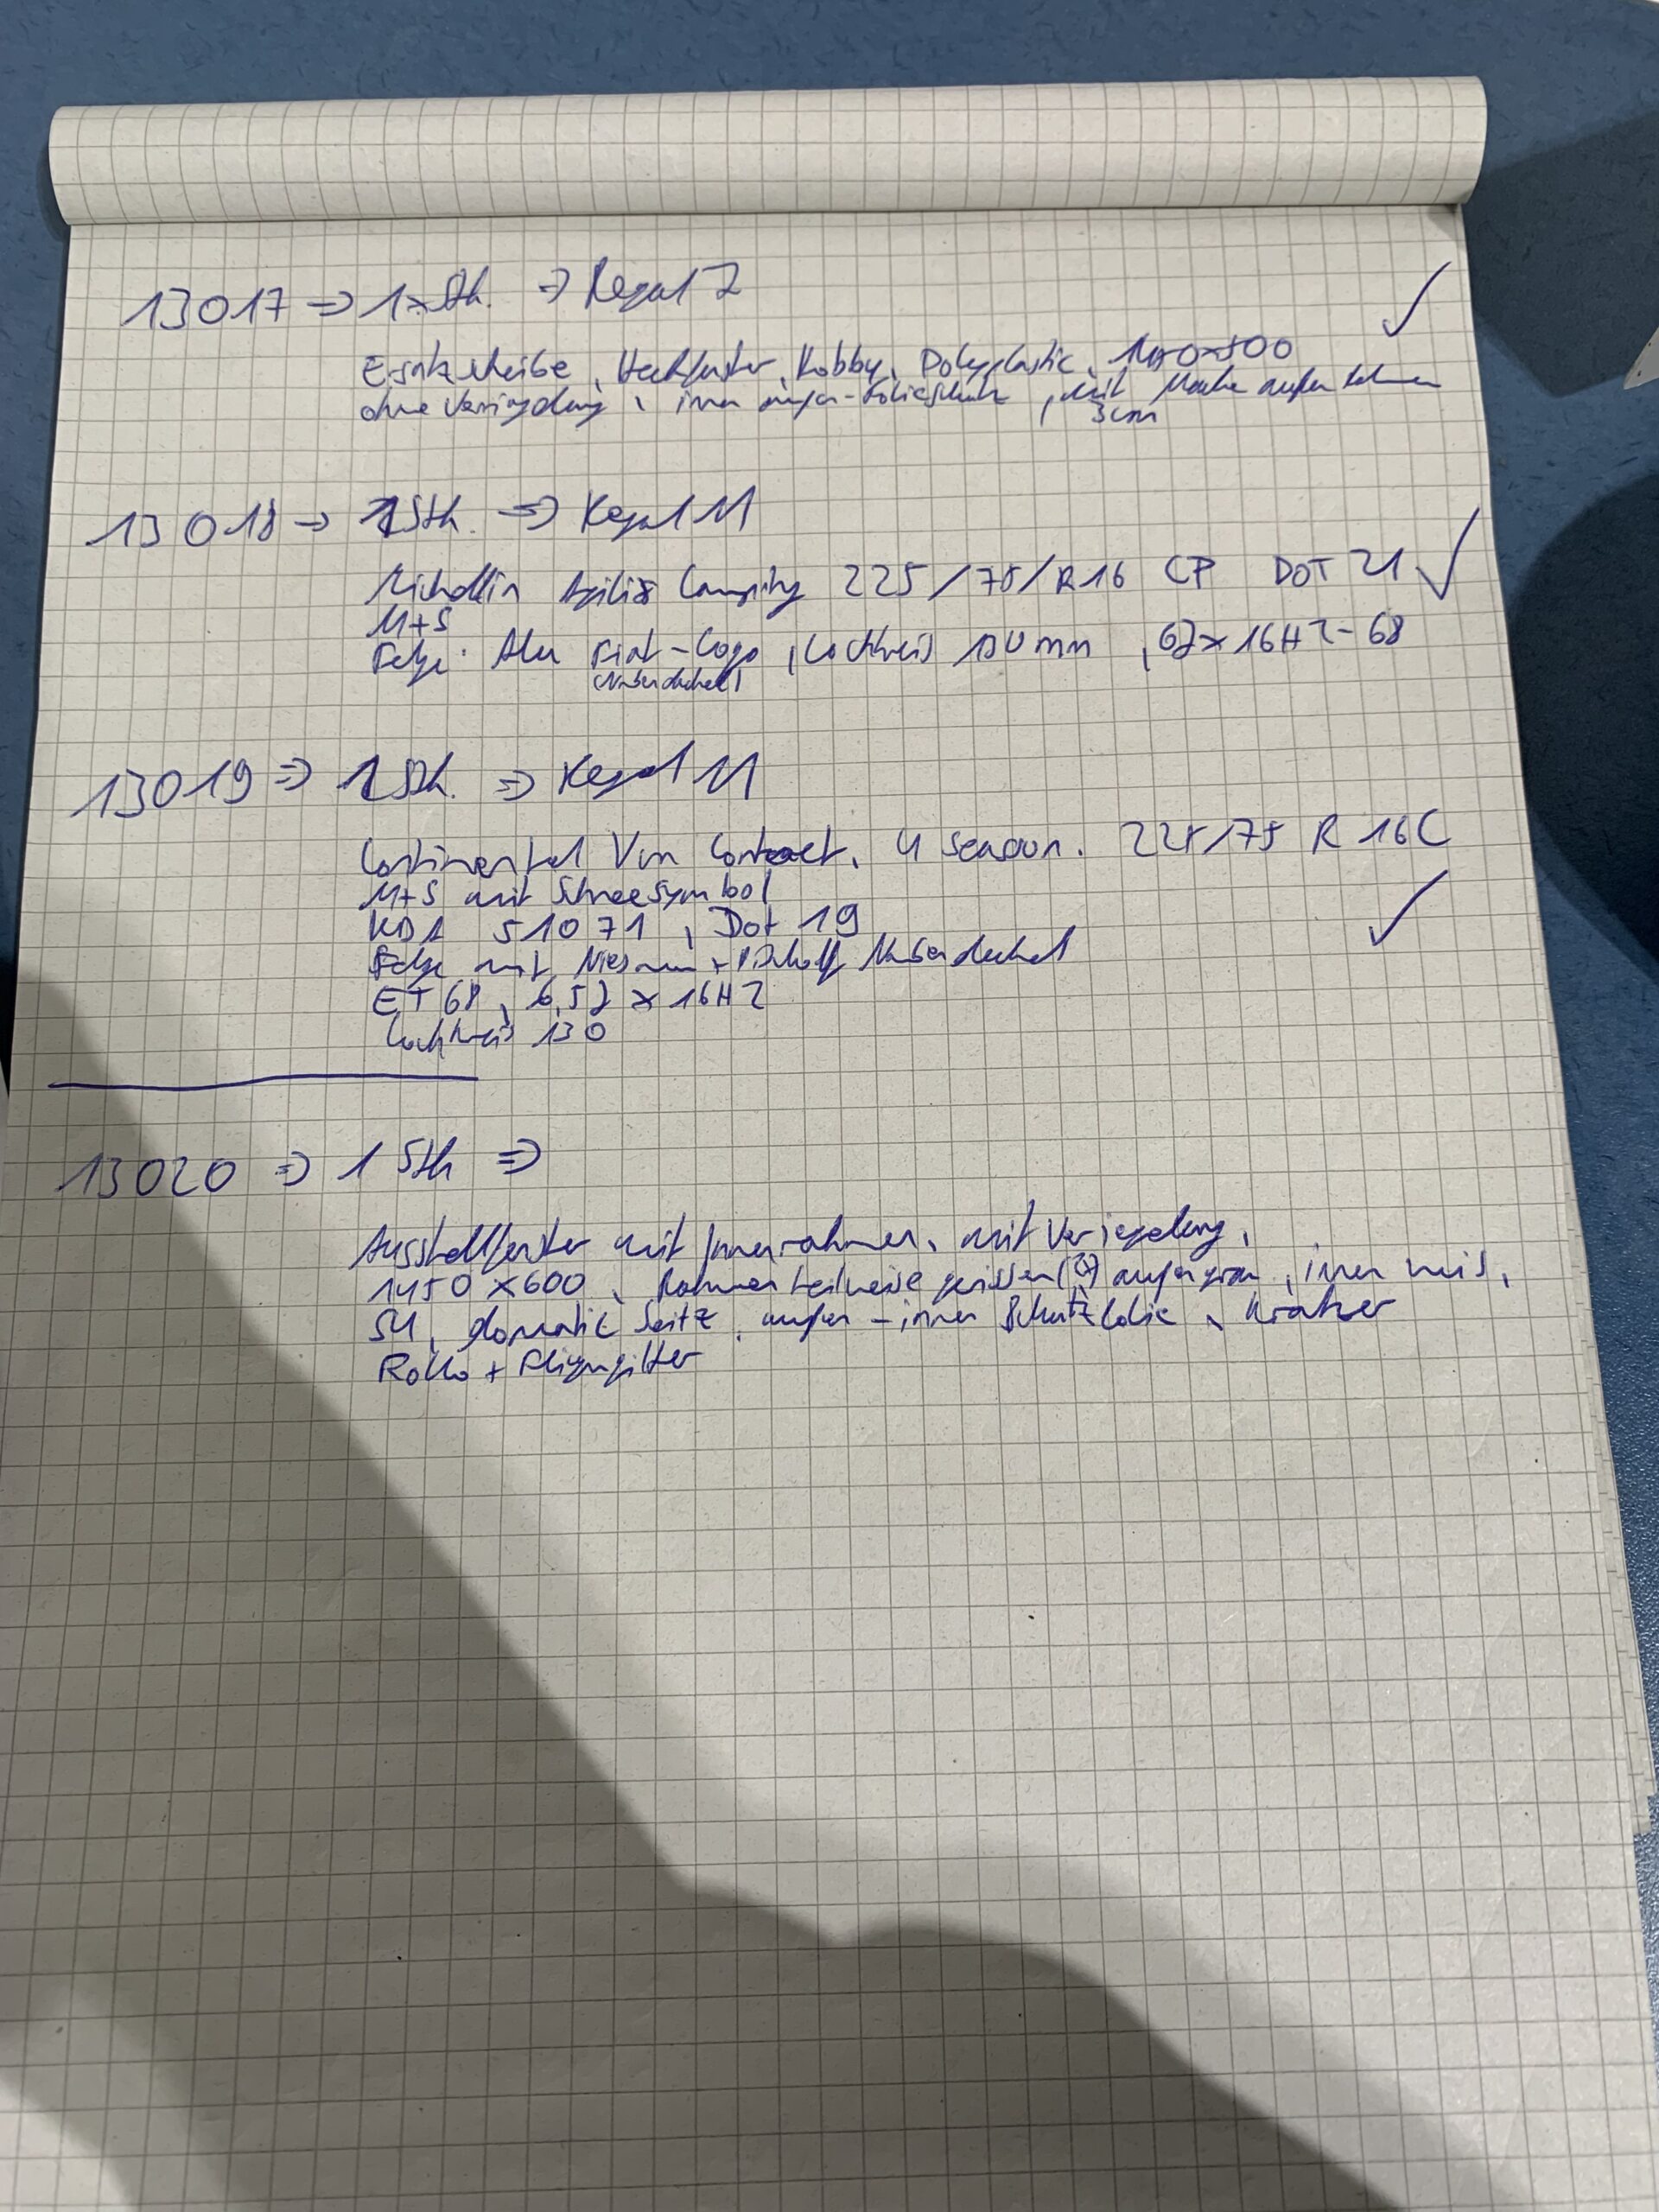 13017 => 1x Stk. => Regal 7
Ersatzscheibe, Heckfenster, Hobby, Polyplastic, x500
ohne Verriegelung, innen außen-Folieschutz, mit Macke außen Rahmen
3cm
13018 -> 1 Stk. => Regal 11
Michellin Agilis Camping 225/75/R16 CP DOT 21
M+S
Felge: Alu Fiat-Logo, Lochkreis 130mm, 6J x 16H2-68
(Nabendeckel)
13019 => 1 Stk. => Regal 11
Continental Van Contact. 4 season. 225/75 R 16C
M+S mit Schneesymbol
KBA 51071, Dot 19
Felge mit Niesmann + Bischoff Nabendeckel
ET 68, 6,5J x 16H2
Lochkreis 130
13020 => 1 Stk =>
Ausstellfenster mit Innenrahmen, mit Verriegelung,
1450 x 600, Rahmen teilweise gerissen außen grau, innen
S4, dometic Seitz, außen - innen Schutzfolie, Kratzer
Rollo + Fliegengitter